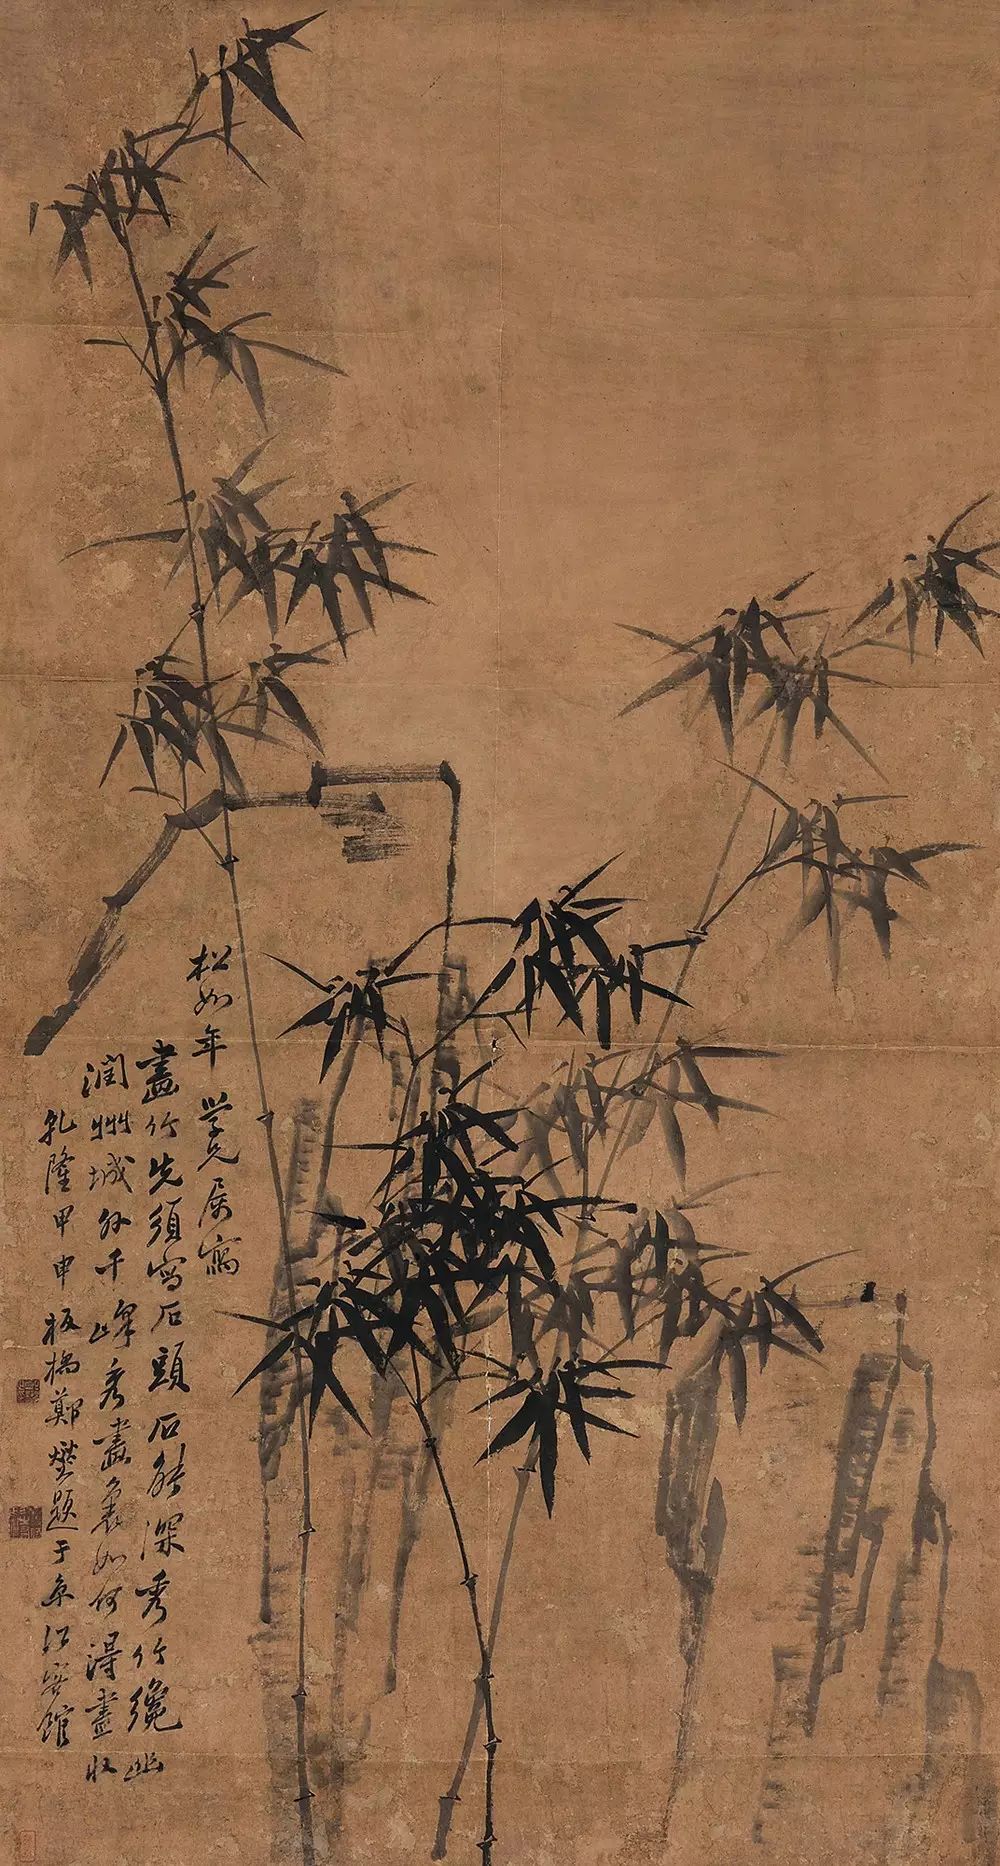 松如年學兄屬寫
畫竹先須寫石頭石能深秀竹纔幽
潤州城外千峰秀畫裏如何得盡收
乾隆甲申板橋鄭燮題于京江客館